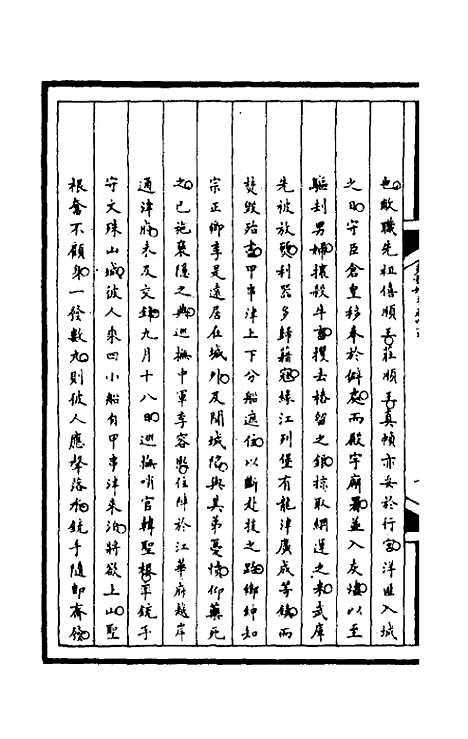 也敢職先祖僖順善莊順善真幀亦妥於行宮洋匪入城
之日守臣倉皇移奉於僻處而殿宇廟署並入灰燼以至
驅刦男婦攘殺牛畜攫去樁留之銀掠取綱運之米武庫
先被放頭利器多歸藉寇緣江列堡有龍津廣成等鎮而
焚毀殆盡甲串津上下分船遮住以斷赴援之路鄉紳知
宗正卿李是遠居在城外及聞城陷與其弟憂憤仰藥死
之已施褒隱之典巡撫中軍李容熙住陣於江華府越岸
通津府未及交鋒九月十八日巡撫哨官韓聖根平銃手
守文殊山城彼人乘四小船自甲串津來泊將欲上山聖
根奮不顧身一發數丸則彼人應聲落水銃手隨即齊發